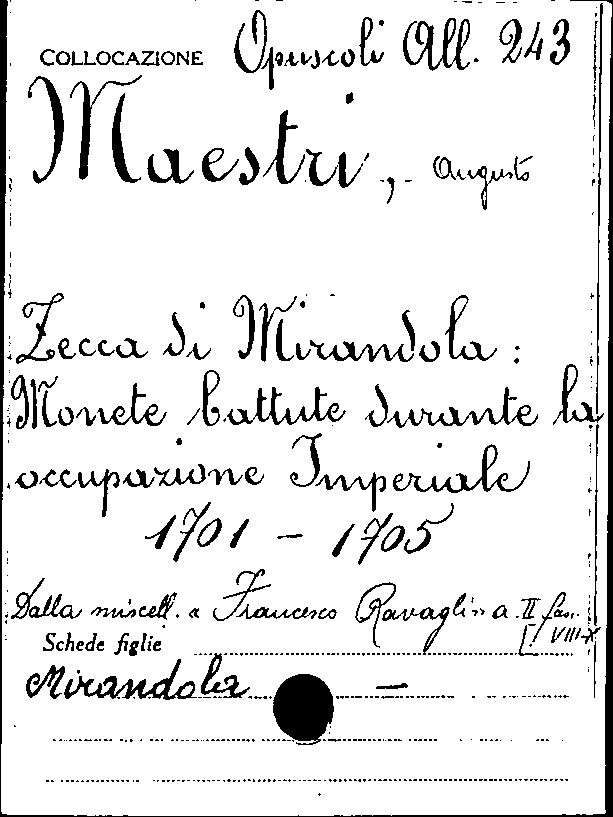 COLLOCAZIONE Opuscoli All. 243
Maestri, Augusto
Zecca di Mirandola:
Monete battute durante la
occupazione Imperiale
1701 - 1705
Dalla miscell. a Francesco Ravaglia. II fasc.
VIII-X
Schede figlie
Mirandola —